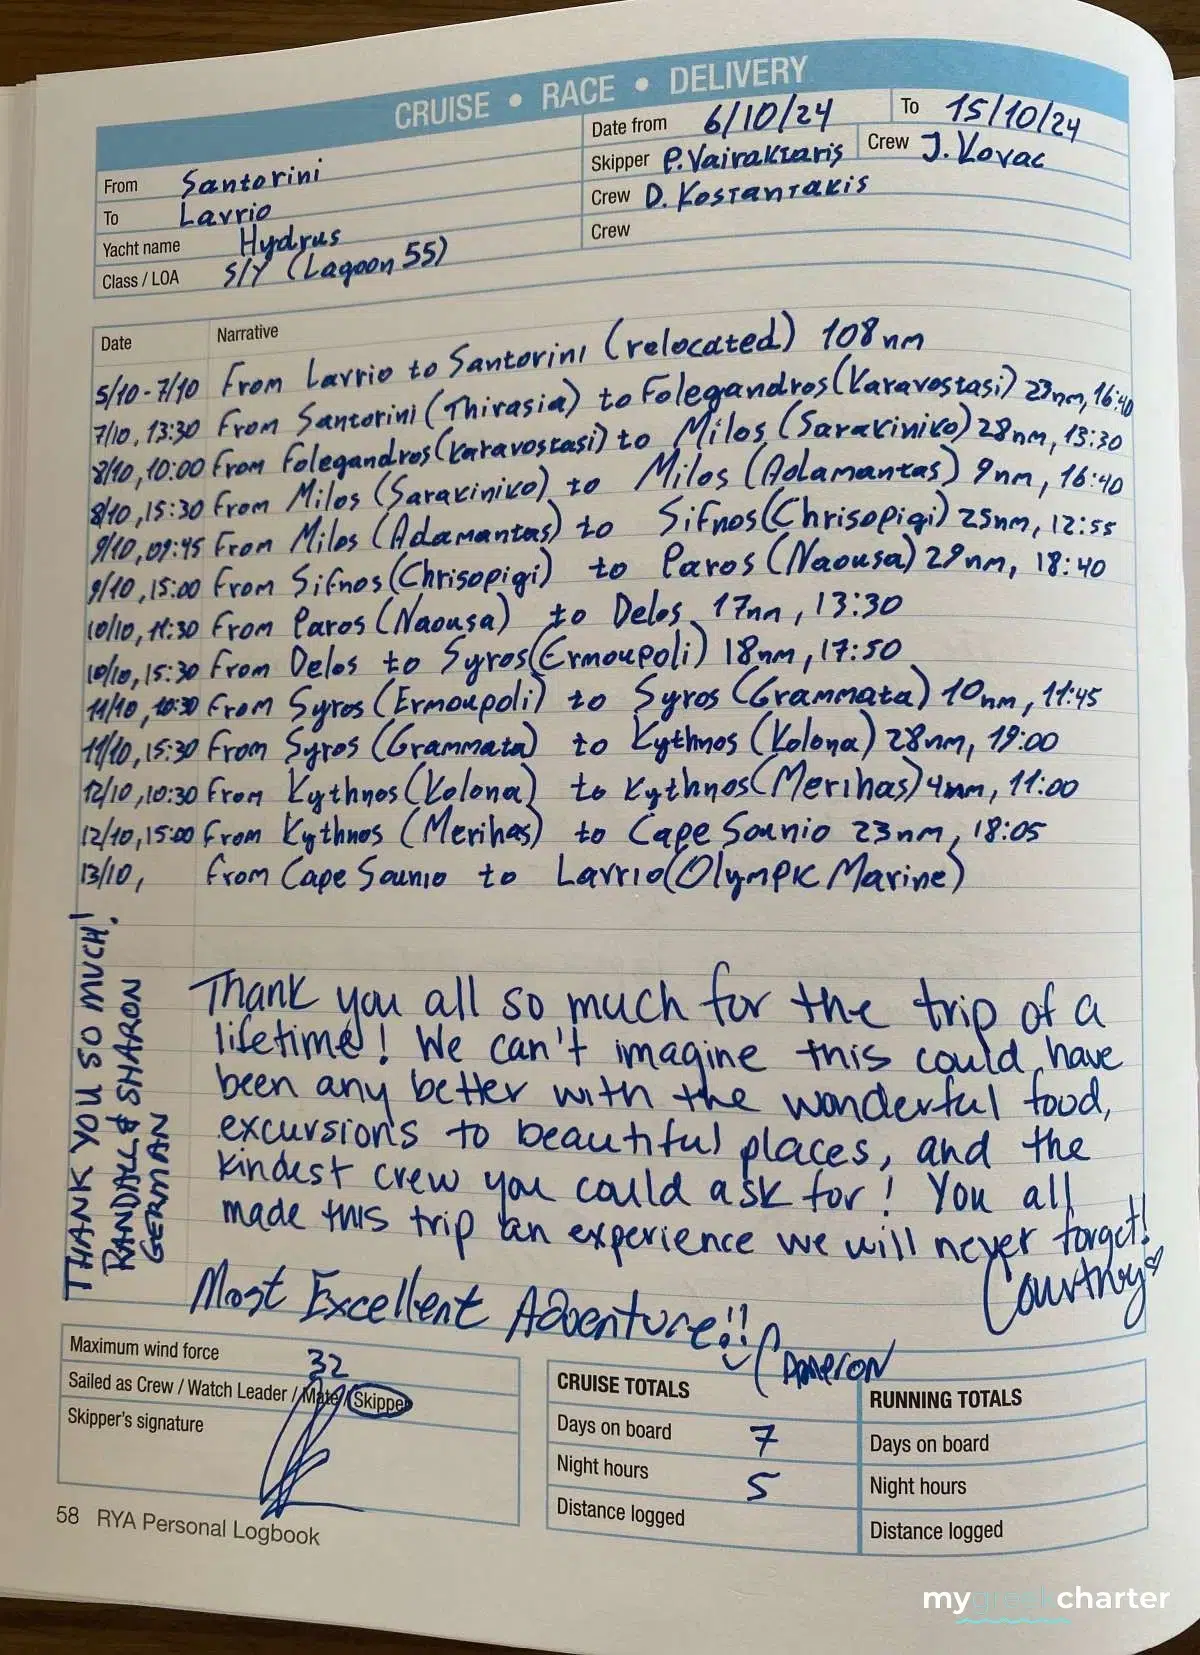 CRUISE • RACE • DELIVERY
Date from 6/10/24 To 15/10/24
From Santorini Skipper P. Vairaktaris Crew J. Kovac
To Lavrio Crew D. Kostantakis
Yacht name Hydrus Crew
Class / LOA S/Y (Lagoon 55)
Date Narrative
5/10 - 7/10 From Lavrio to Santorini (relocated) 108nm
7/10, 13:30 From Santorini (Thirasia) to Folegandros (Karavostasi) 23nm, 16:40
8/10, 10:00 From Folegandros (Karavostasi) to Milos (Sarakiniko) 28nm, 13:30
8/10, 15:30 From Milos (Sarakiniko) to Milos (Adamantas) 9nm, 16:40
9/10, 09:45 From Milos (Adamantas) to Sifnos (Chrisopigi) 25nm, 12:55
9/10, 15:00 From Sifnos (Chrisopigi) to Paros (Naousa) 29nm, 18:40
10/10, 11:30 From Paros (Naousa) to Delos 17nm, 13:30
10/10, 15:30 From Delos to Syros (Ermoupoli) 18nm, 17:50
11/10, 10:30 From Syros (Ermoupoli) to Syros (Grammata) 10nm, 11:45
11/10, 15:30 From Syros (Grammata) to Kythnos (Kolona) 28nm, 19:00
12/10, 10:30 From Kythnos (Kolona) to Kythnos (Merihas) 4nm, 11:00
12/10, 15:00 From Kythnos (Merihas) to Cape Sounio 23nm, 18:05
13/10, From Cape Sounio to Lavrio (Olympic Marine)
THANK YOU SO MUCH!
RANDALL & SHARON
GERMAN
Thank you all so much for the trip of a
lifetime! We can't imagine this could have
been any better with the wonderful food,
excursions to beautiful places, and the
kindest crew you could ask for! You all
made this trip an experience we will never forget!
Courtney
Most Excellent Adventure!!
Cameron
Maximum wind force 32
Sailed as Crew / Watch Leader / Mate / Skipper
Skipper's signature
CRUISE TOTALS
Days on board 7
Night hours 5
Distance logged
RUNNING TOTALS
Days on board
Night hours
Distance logged
58 RYA Personal Logbook
mygreekcharter